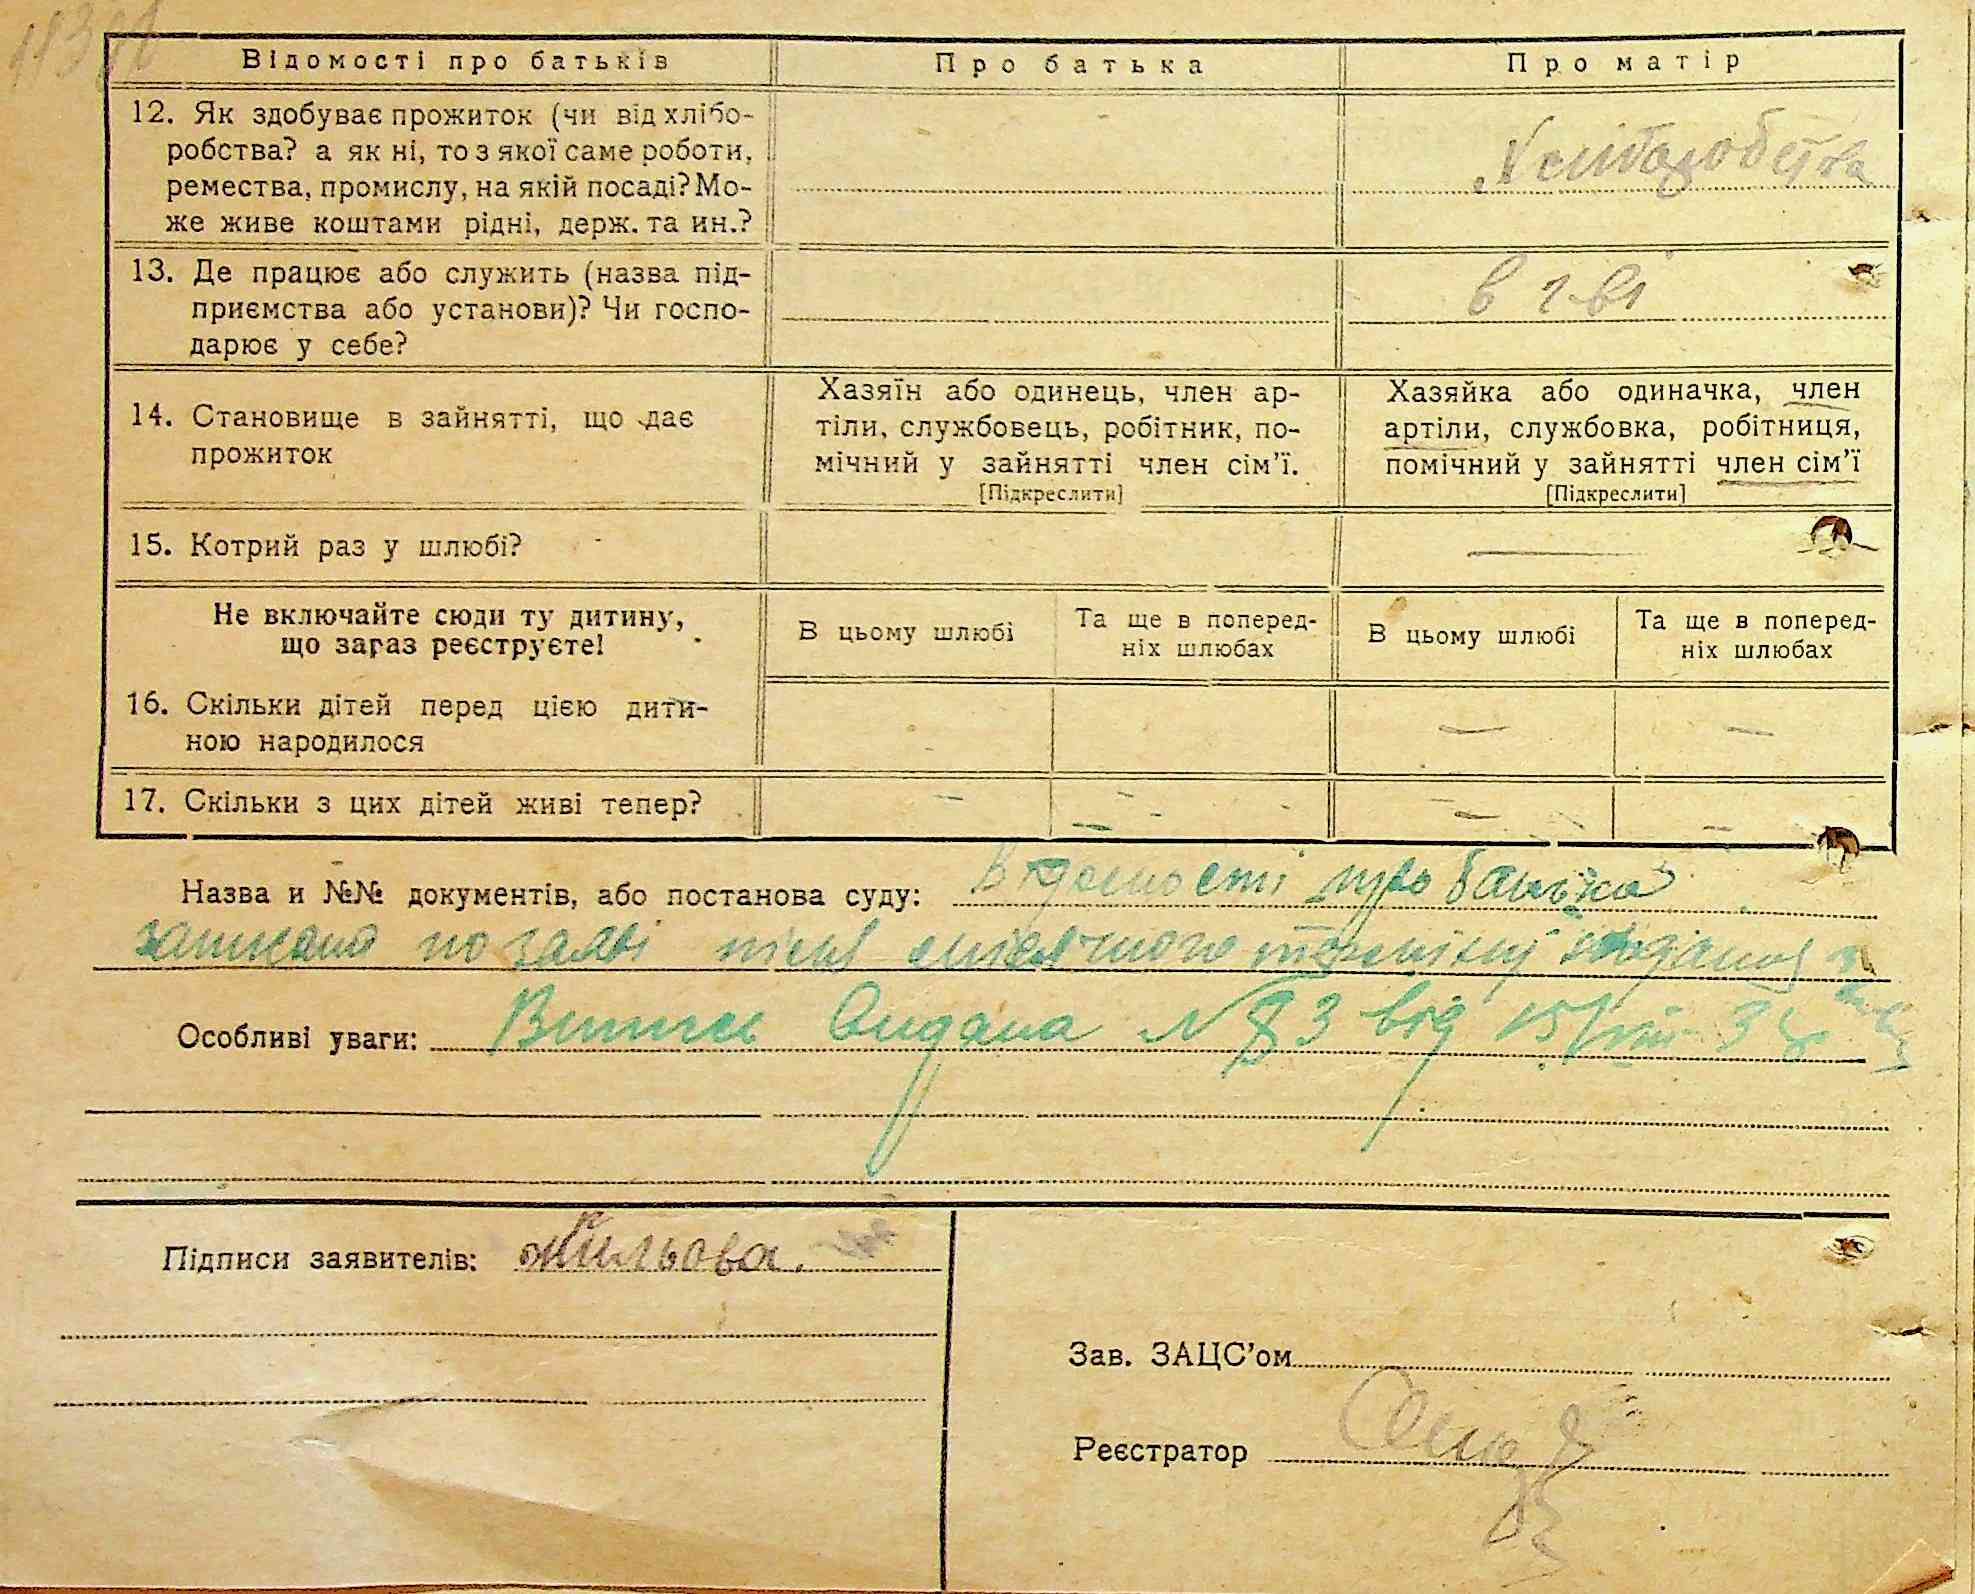 Відомості про батьків
Про батька
Про матір
12. Як здобуває прожиток (чи від хлібо-
робства? а як ні, то з якої саме роботи,
ремества, промислу, на якій посаді? Мо-
же живе коштами рідні, держ. та ин.?
Хліборобства
13. Де працює або служить (назва під-
приємства або установи)? Чи госпо-
дарює у себе?
в г-ві
14. Становище в зайнятті, що дає
прожиток
Хазяїн або одинець, член ар-
тіли, службовець, робітник, по-
мічний у зайнятті член сім'ї.
[Підкреслити]
Хазяйка або одиначка, член
артіли, службовка, робітниця,
помічний у зайнятті член сім'ї
[Підкреслити]
15. Котрий раз у шлюбі?
—
Не включайте сюди ту дитину,
що зараз реєструєте!
В цьому шлюбі
Та ще в поперед-
ніх шлюбах
В цьому шлюбі
Та ще в поперед-
ніх шлюбах
16. Скільки дітей перед цією дити-
ною народилося
— —
17. Скільки з цих дітей живі тепер?
— — — —
Назва и №№ документів, або постанова суду: Відомості про батька
записано по заяві після місячного терміну
Особливі уваги: Випись видана № 83 від 15/VIII
Підписи заявителів: Мильова.
Зав. ЗАЦС'ом
Реєстратор